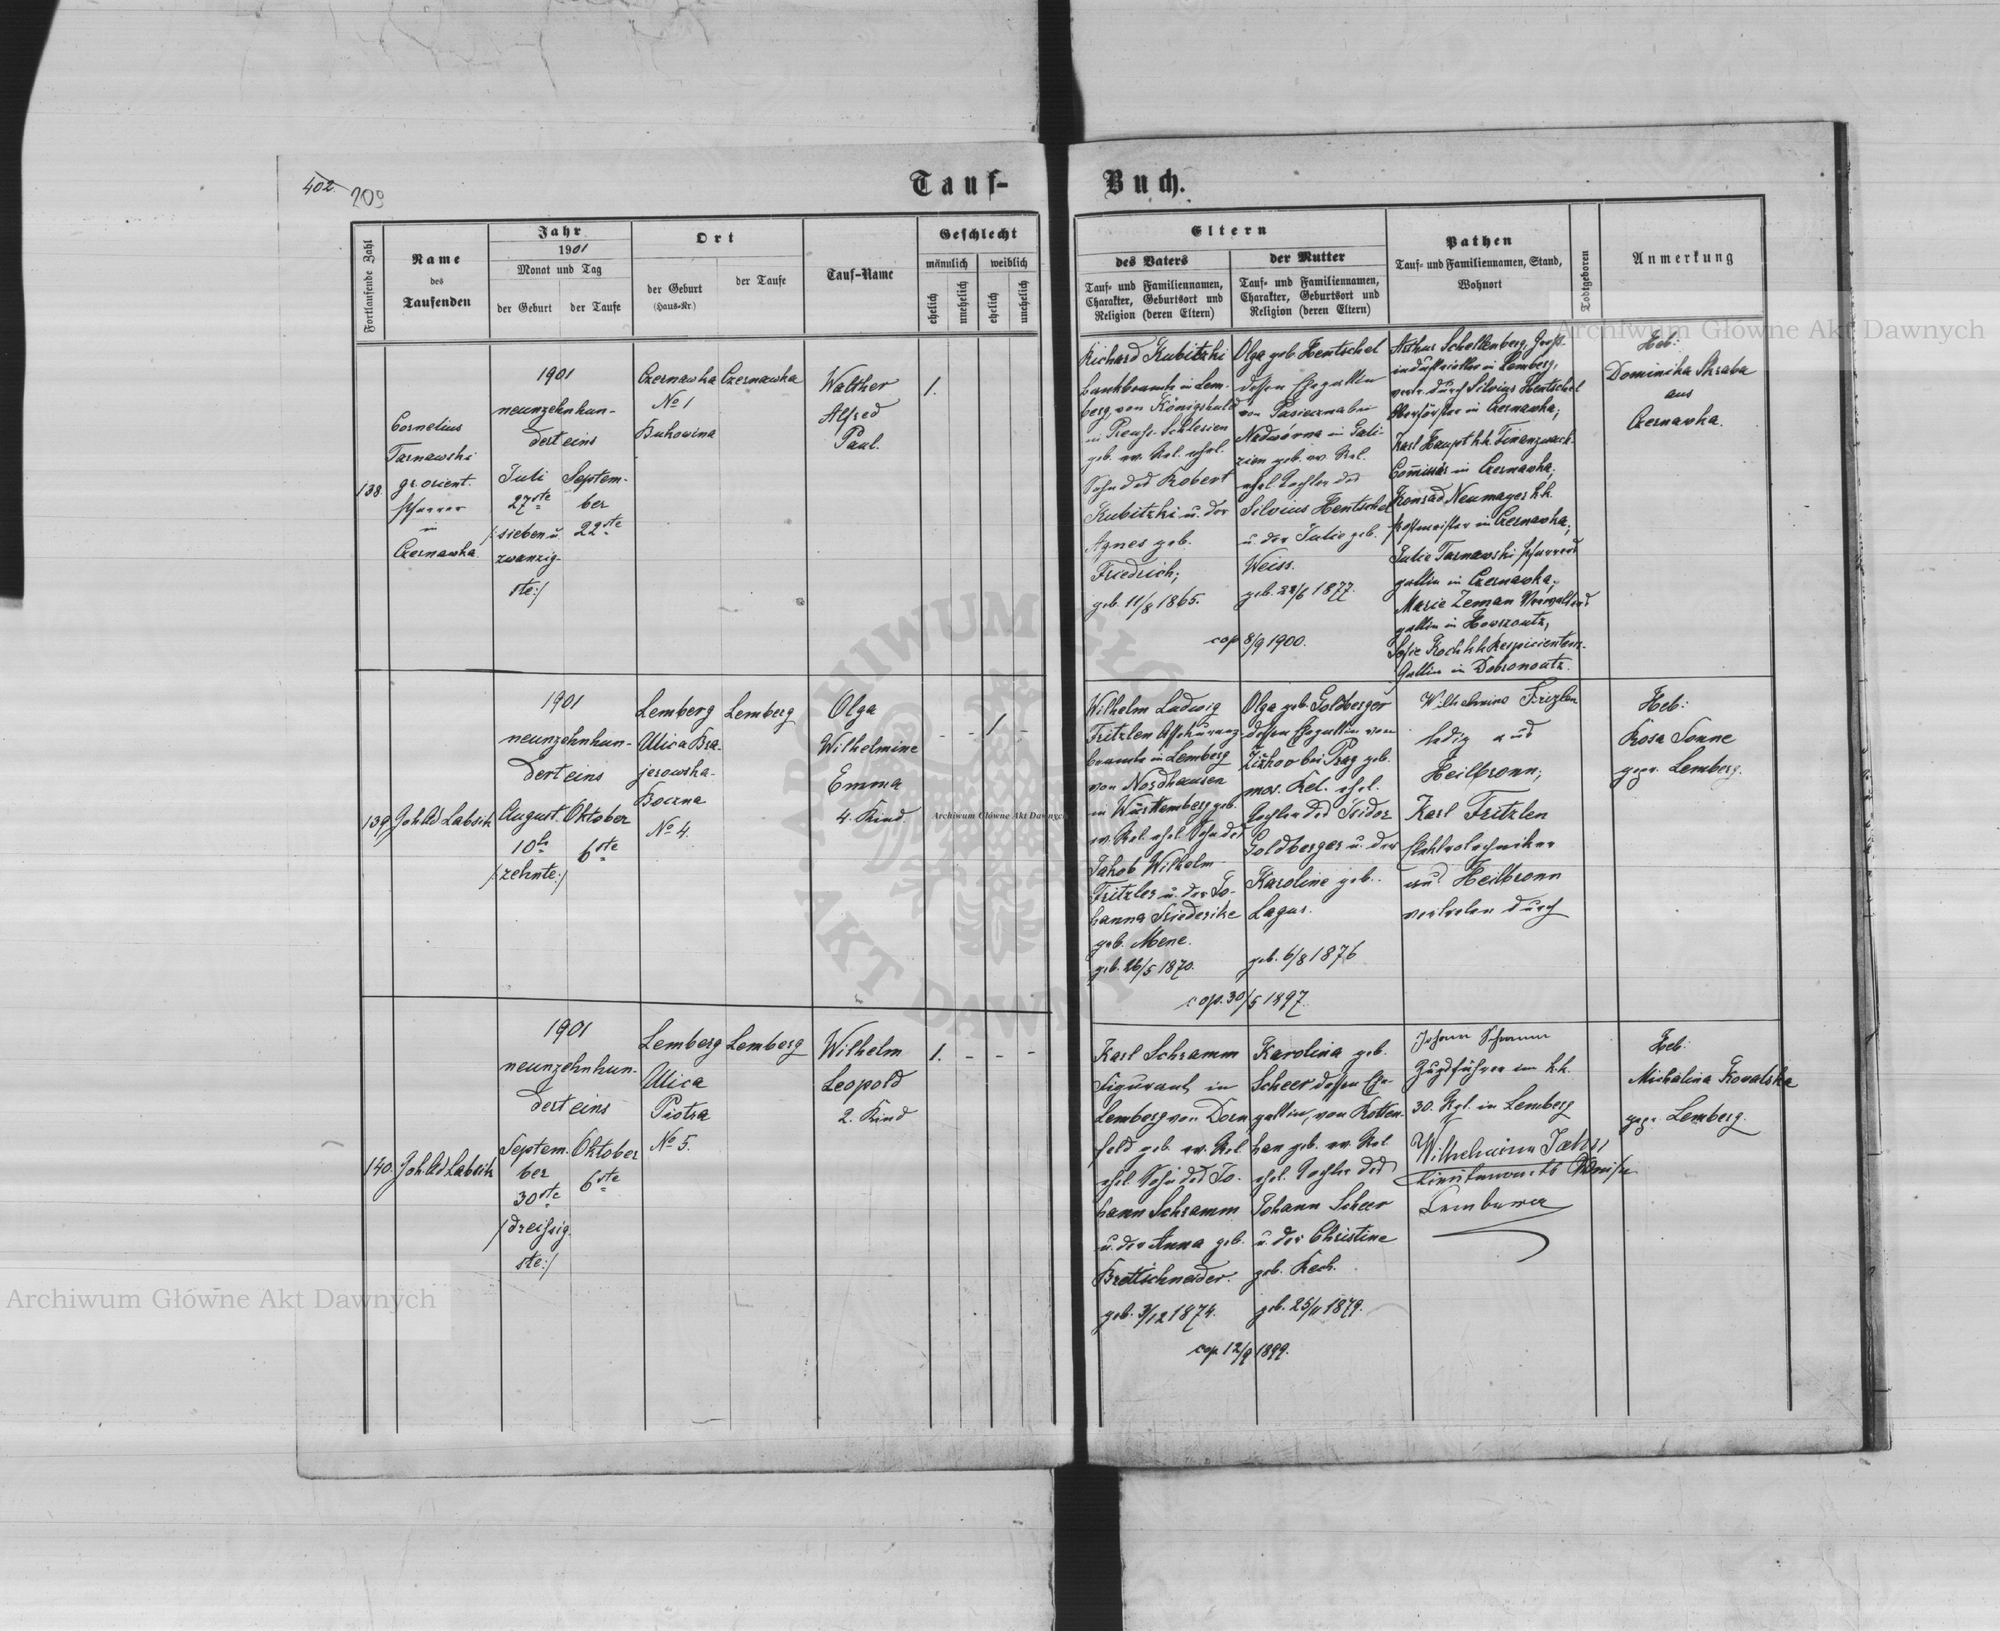 402. 209
Tauf-Buch.
Fortlaufende Zahl
Name
des
Taufenden
Jahr
1901
Monat und Tag
der Geburt
der Taufe
Ort
der Geburt
(Haus-Nr.)
der Taufe
Tauf-Name
Geschlecht
männlich
weiblich
ehelich
unehelich
ehelich
unehelich
Eltern
des Vaters
Tauf- und Familiennamen,
Charakter, Geburtsort und
Religion (deren Eltern)
der Mutter
Tauf- und Familiennamen,
Charakter, Geburtsort und
Religion (deren Eltern)
Pathen
Tauf- und Familiennamen, Stand,
Wohnort
Todtgeboren
Anmerkung
138.
Cornelius
Tarnawski
gr. orient.
Pfarrer
in
Czernawka
1901
neunzehnhun-
dert eins
Juli
27ste
/:sieben u.
zwanzig-
ste:/
Septem-
ber
22ste
Czernawka
No 1
Bukowina
Czernawka
Walther
Alfred
Paul.
1.
Richard Kubitzki
Bankbeamte in Lem-
berg, von Königshuld
in Preuss. Schlesien
geb. ev. Rel. ehel.
Sohn des Robert
Kubitzki u. der
Agnes geb.
Friedrich;
geb. 11/8 1865.
Olga geb. Hentschel
dessen Ehegattin
von Pasieczna bei
Nadwórna in Gali-
zien geb. ev. Rel.
ehel. Tochter des
Silvius Hentschel
u. der Julie geb.
Weiss.
geb. 28/6 1877.
cop 8/9 1900.
Arthur Schellenberg, Groß-
industrieller in Lemberg,
vertr. durch Silvius Hentschel
Oberförster in Czernawka;
Karl Haupt k.k. Finanzwach-
Commissär in Czernawka;
Konrad Neumayer k.k.
Postmeister in Czernawka;
Julie Tarnawski Pfarrers
gattin in Czernawka;
Marie Zeman Verwalters
gattin in
Sofie Koch k.k. Respicientens-
Gattin in Dobronoutz.
Heb:
Dominika Skraba
aus
Czernawka.
139
Joh Ed Labsik
1901
neunzehnhun-
dert eins
August.
10te
/:zehnte:/
Oktober
6ste
Lemberg
Ulica Bra-
jerowska-
Boczna
No 4.
Lemberg
Olga
Wilhelmine
Emma
4. Kind
- - 1 -
Wilhelm Ludwig
Fritzlen Assekuranz-
beamte in Lemberg
von Nordhausen
in Württemberg geb.
ev. Rel. ehel. Sohn des
Jakob Wilhelm
Fritzlen u. der Jo-
hanna Friederike
geb. Mene.
geb. 26/5 1870.
Olga geb. Goldberger
dessen Ehegattin von
Žižkov bei Prag geb.
mos. Rel. ehel.
Tochter des Isidor
Goldberger u. der
Karoline geb.
Lagus.
geb. 6/8 1876
cop. 30/5 1897.
Wilhelmine Fritzlen
ledig aus
Heilbronn;
Karl Fritzlen
Elektrotechniker
aus Heilbronn
vertreten durch
Heb:
Rosa Sonne
gepr. Lemberg.
140.
Joh Ed Labsik
1901
neunzehnhun-
dert eins
Septem-
ber
30ste
/:dreissig-
ste:/
Oktober
6ste
Lemberg
Ulica
Piotra
No 5.
Lemberg
Wilhelm
Leopold
2. Kind
1. - - -
Karl Schramm
Figurant in
Lemberg von Dorn-
feld geb. ev. Rel
ehel. Sohn des Jo-
hann Schramm
u. der Anna geb.
Brettschneider.
geb. 3/12 1874.
Karolina geb.
Scheer dessen Ehe-
gattin, von Rotten-
han geb. ev. Rel
ehel. Tochter des
Johann Scheer
u. der Christine
geb. Rech.
geb. 25/11 1879.
cop 12/9 1899.
Johann Schramm
Zugsführer im k.k.
30. Rgt. in Lemberg
Wilhelmine
Lemberg
Heb:
Michalina Kowalska
gepr. Lemberg.
Archiwum Główne Akt Dawnych
Archiwum Główne Akt Dawnych
Archiwum Główne Akt Dawnych